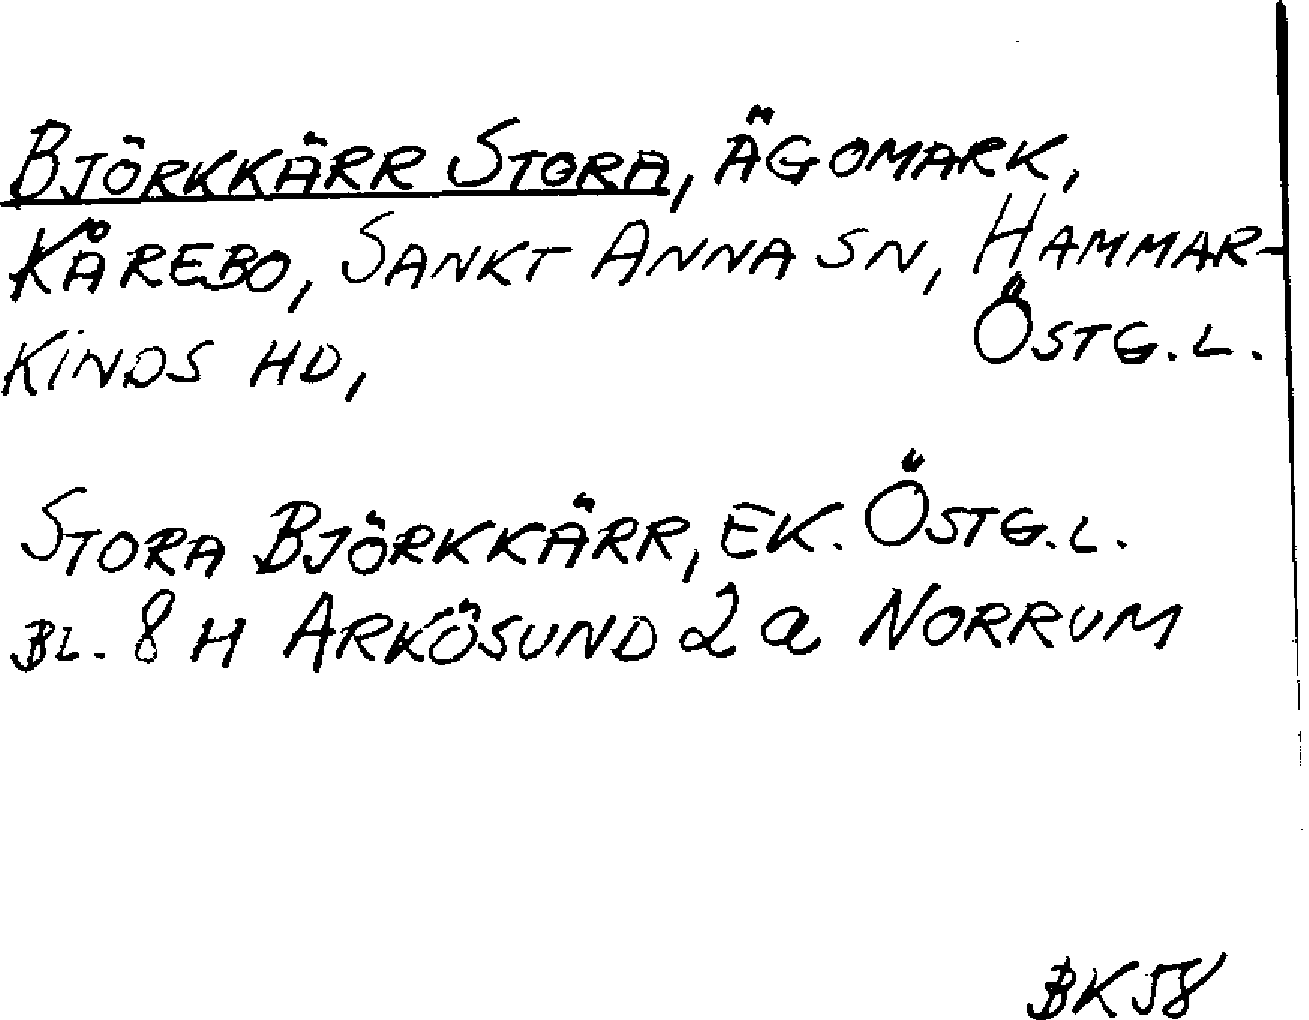 BJÖRKKÄRR STORA, ÄGOMARK,
KÅREBO, SANKT ANNA SN, HAMMAR-
KINDS HD, ÖSTG.L.
STORA BJÖRKKÄRR, EK. ÖSTG.L.
BL. 8 H ARKÖSUND 2 a NORRUM
BK58